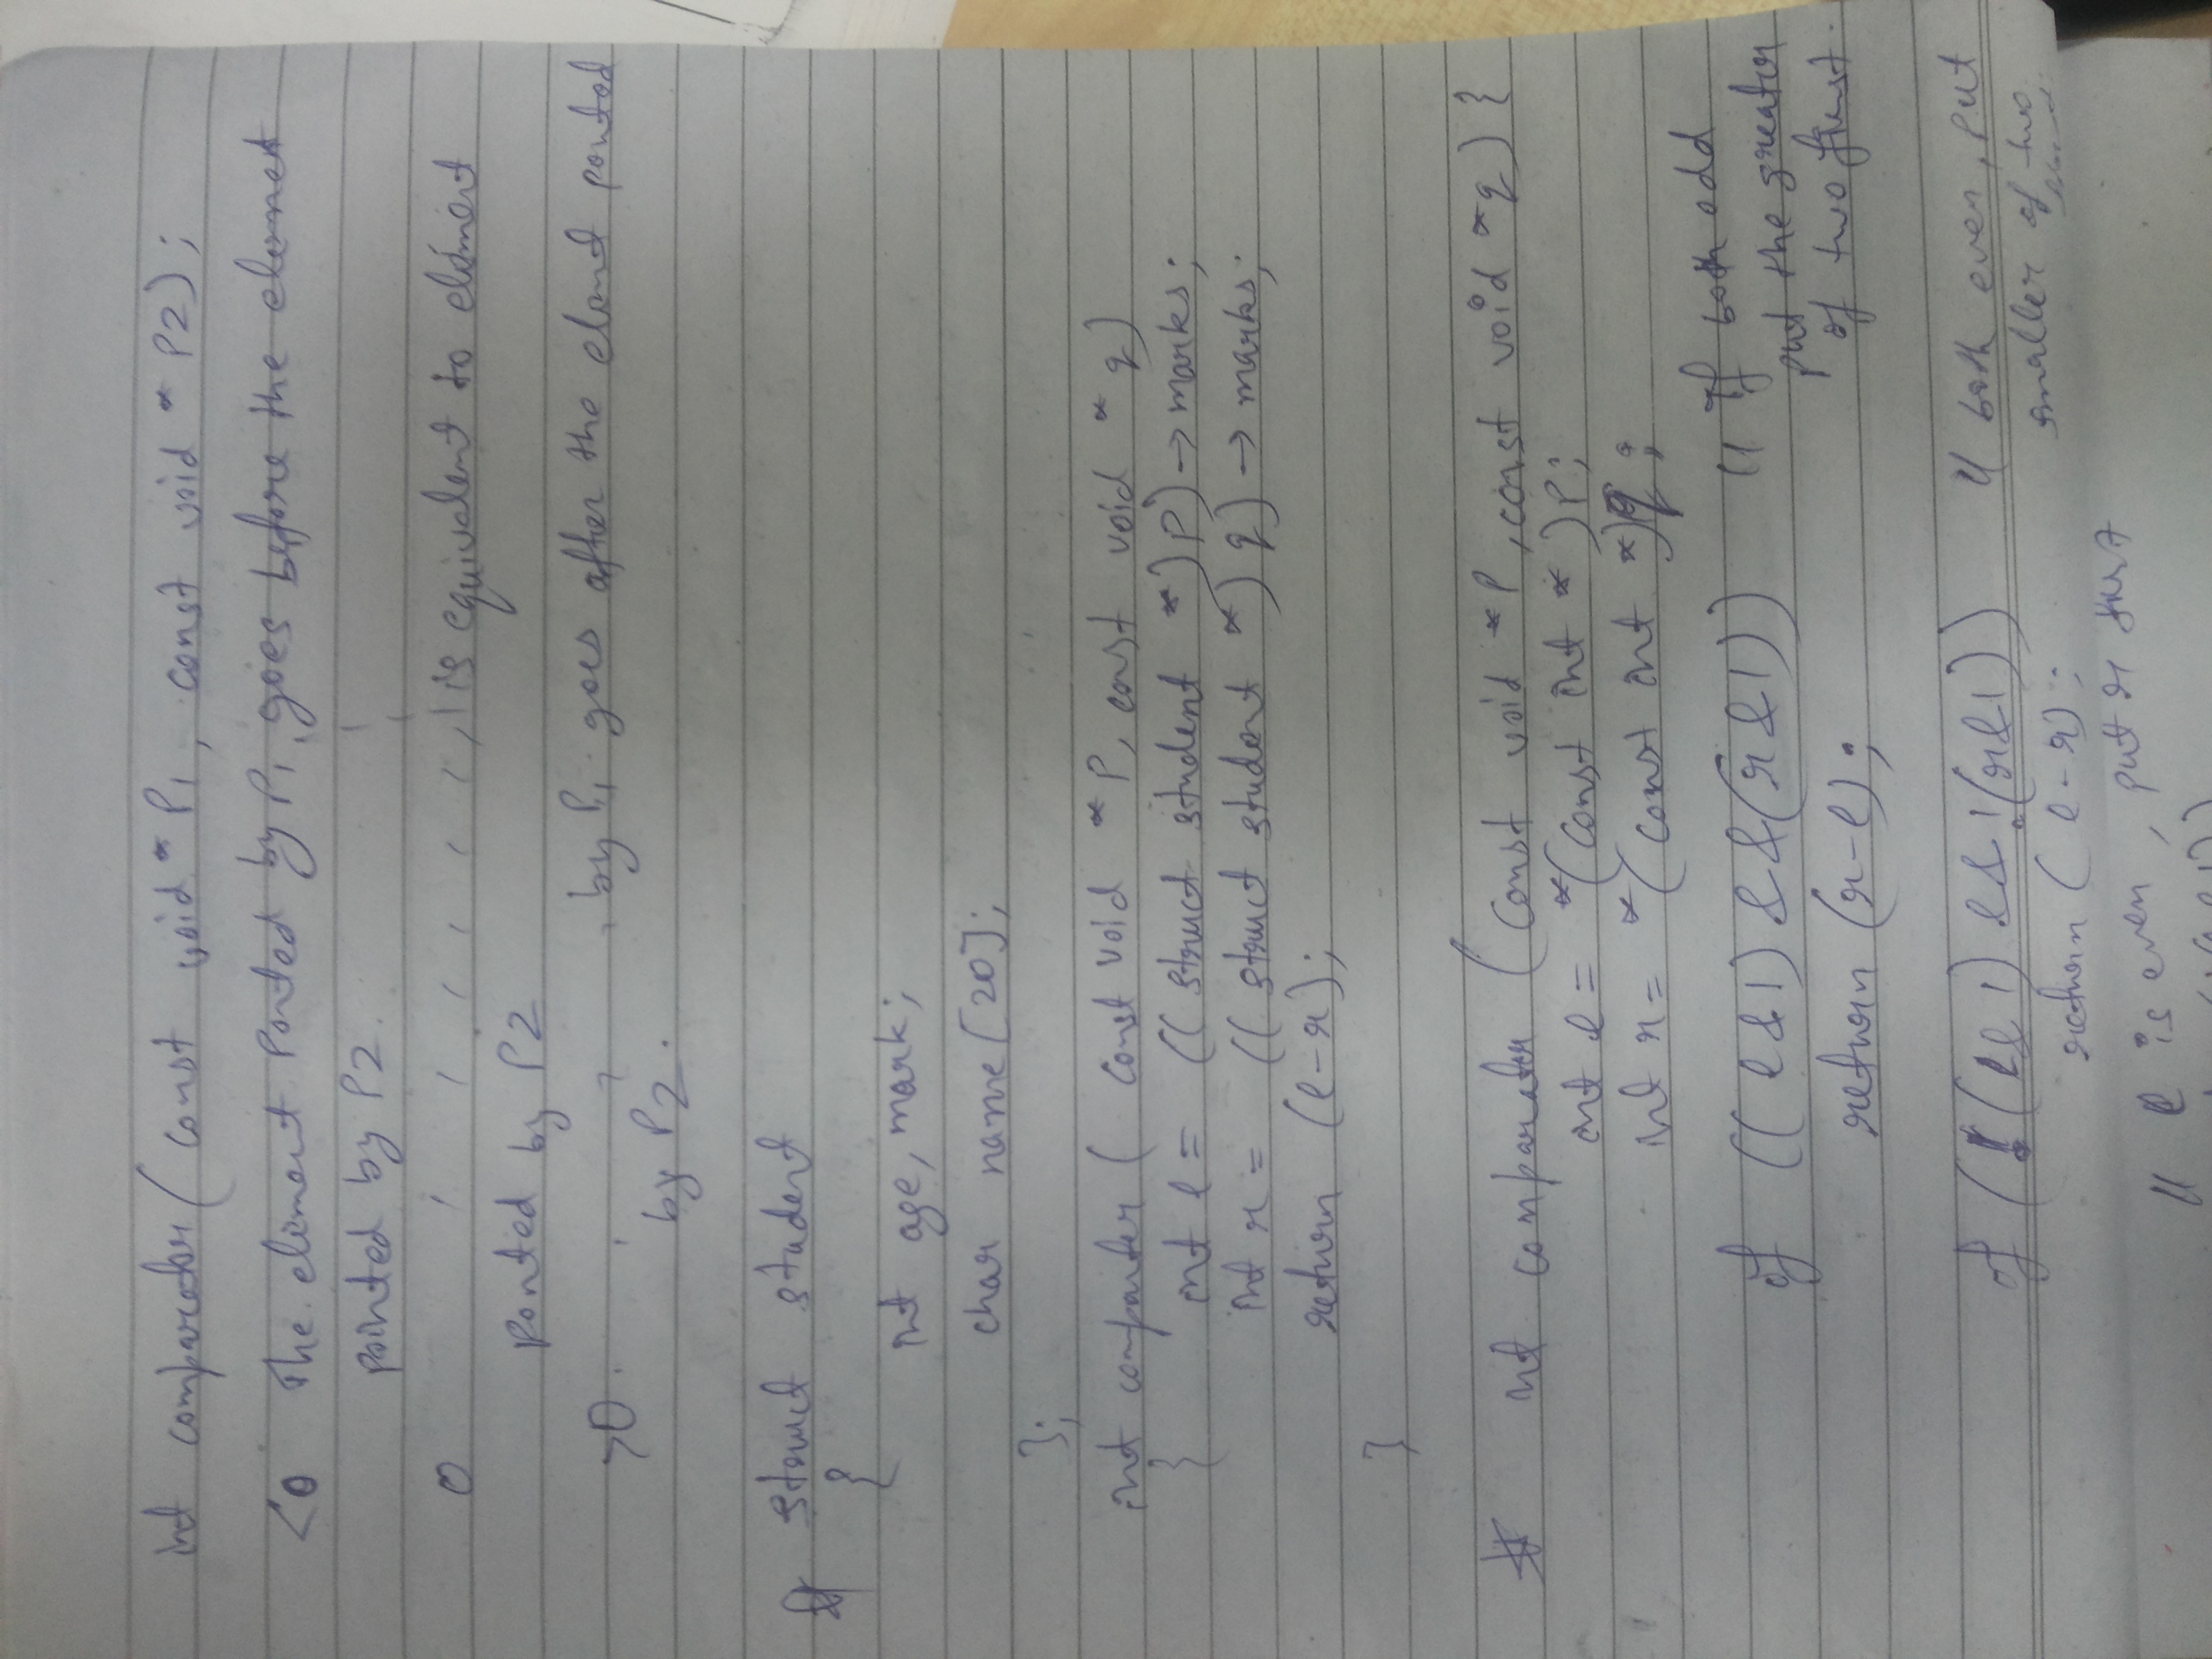 int comparator ( const void * P1, const void * P2);
<0 The element Ponted by P1 goes before the element
pointed by P2.
0 , , , , , , , is equivalent to element
ponted by P2
>0 , , , by P1 goes after the elemnt ponted
by P2.
# struct student
{
int age, mark;
char name [20];
};
int comparter ( const void * P, const void * q)
{ int l = (( struct student *) P) -> marks;
int r = (( struct student *) q) -> marks;
return (l-r);
}
# int comparator (const void *P, const void *q) {
int l = *(const int *)P;
int r = *(const int *)q;
if ((l&1) && (r&1)) // If both odd
put the greater
of two first.
return (r-l);
if (!(l&1) && !(r&1)) // both even, put
smaller of two
return (l-r);
// l is even, put r first